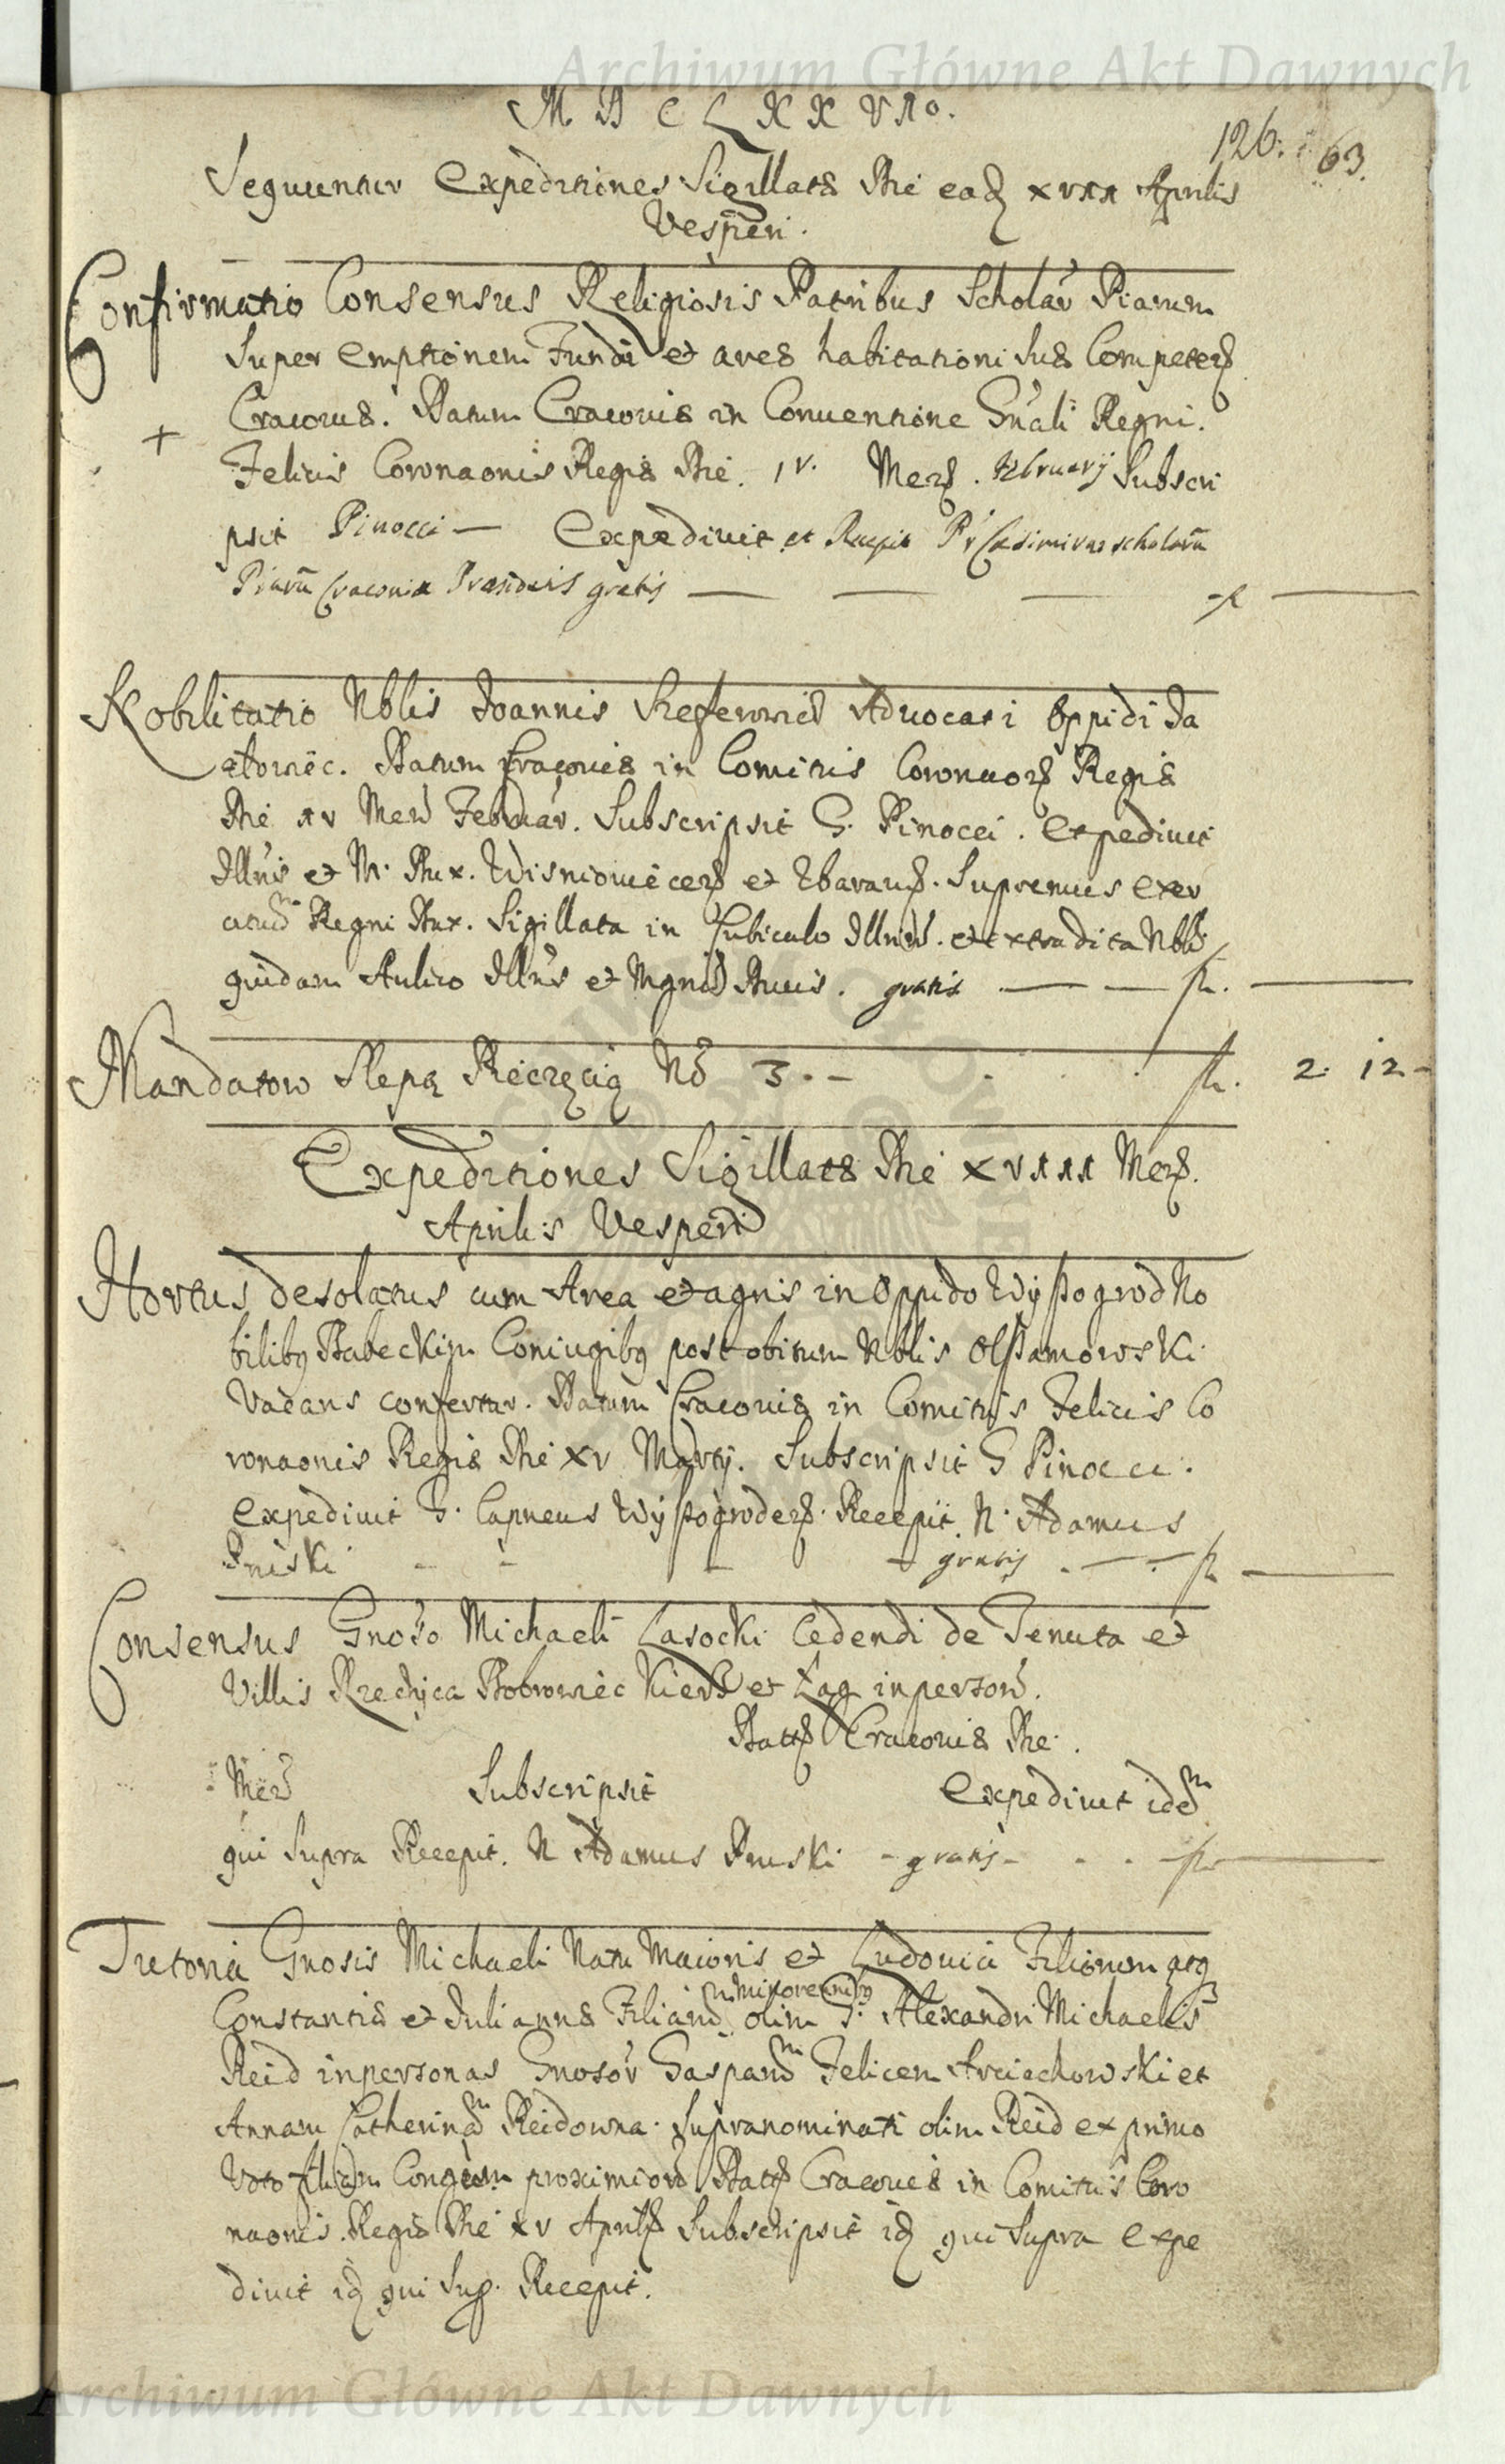 Archiwum Główne Akt Dawnych
M D C L X X VIo.
126. 63.
Sequuntur Expeditiones Sigillatæ Die eadem XVII Aprilis
Vesperi.
Confirmatio Consensus Religiosis Patribus Scholar Piarum
super emptionem Fundi et areæ habitationi suæ Competen
Cracoviæ. Datum Cracoviæ in Conventione Gnali Regni.
+ Felicis Coronaonis Regiæ Die. 1V. Mens. February Subscri
psit Pinocci — Expedivit et Recepit Pr Casimirus scholarū
Piarū Cracoviæ gratis — — — fl —
Nobilitatio Nblis Joannis Advocati Oppidi Ja
Datum Cracoviæ in Comitiis Coronaons Regiæ
Die XV Mens Februar. Subscripsit G. Pinocci. Expedivit
Illris et M. Dux. Wisniowiecens et Zbaraus. Supremus exer
cituum Regni Dux. Sigillata in Cubiculo Illris. et extradita Nbli
quidam Aulico Illris et Mgnici Ducis. gratis — — fl. —
Mandatow Slepą Pieczęcią No 3. — fl. 2. 12 -
Expeditiones Sigillatæ Die XVIII Mens.
Aprilis Vesperi
Hortus desolatus cum Area et agris in Oppido Wyszogrod No
bilibq Babeckim Coniugibq post obitum Nblis Olszamowski
Vacans confertur. Datum Cracoviæ in Comitiis Felicis Co
ronaonis Regiæ Die XV Martij. Subscripsit G Pinocci.
Expedivit G. Capneus Wyszogrodens. Recepit N. Adamus
Pruski - - - - gratis . — - fl —
Consensus Gnoso Michaeli Lasocki Cedendi de Tenuta et
Villis Rzeczyca Bobrowiec et Łąg in person.
Datt Cracoviæ Die.
Mens Subscripsit Expedivit idem
qui supra Recepit. N Adamus Pruski - gratis - . . - fl —
Tutoria Gnosis Michaeli Natu Maioris et Ludovici Filiorum atq
Constantiæ et Juliannæ Filiarum minorennibq olim G. Alexandri Michaelis
Reid in personas Gnosor Gasparum Felicem Arciechowski et
Annam Catherinam Reidowna. Supranominati olim Reid ex primo
Voto filiam Congem proximior Datt Cracoviæ in Comitiis Coro
naonis Regiæ Die XV Aprilis Subscripsit id qui supra Expe
divit id qui Sup. Recepit.
Archiwum Główne Akt Dawnych